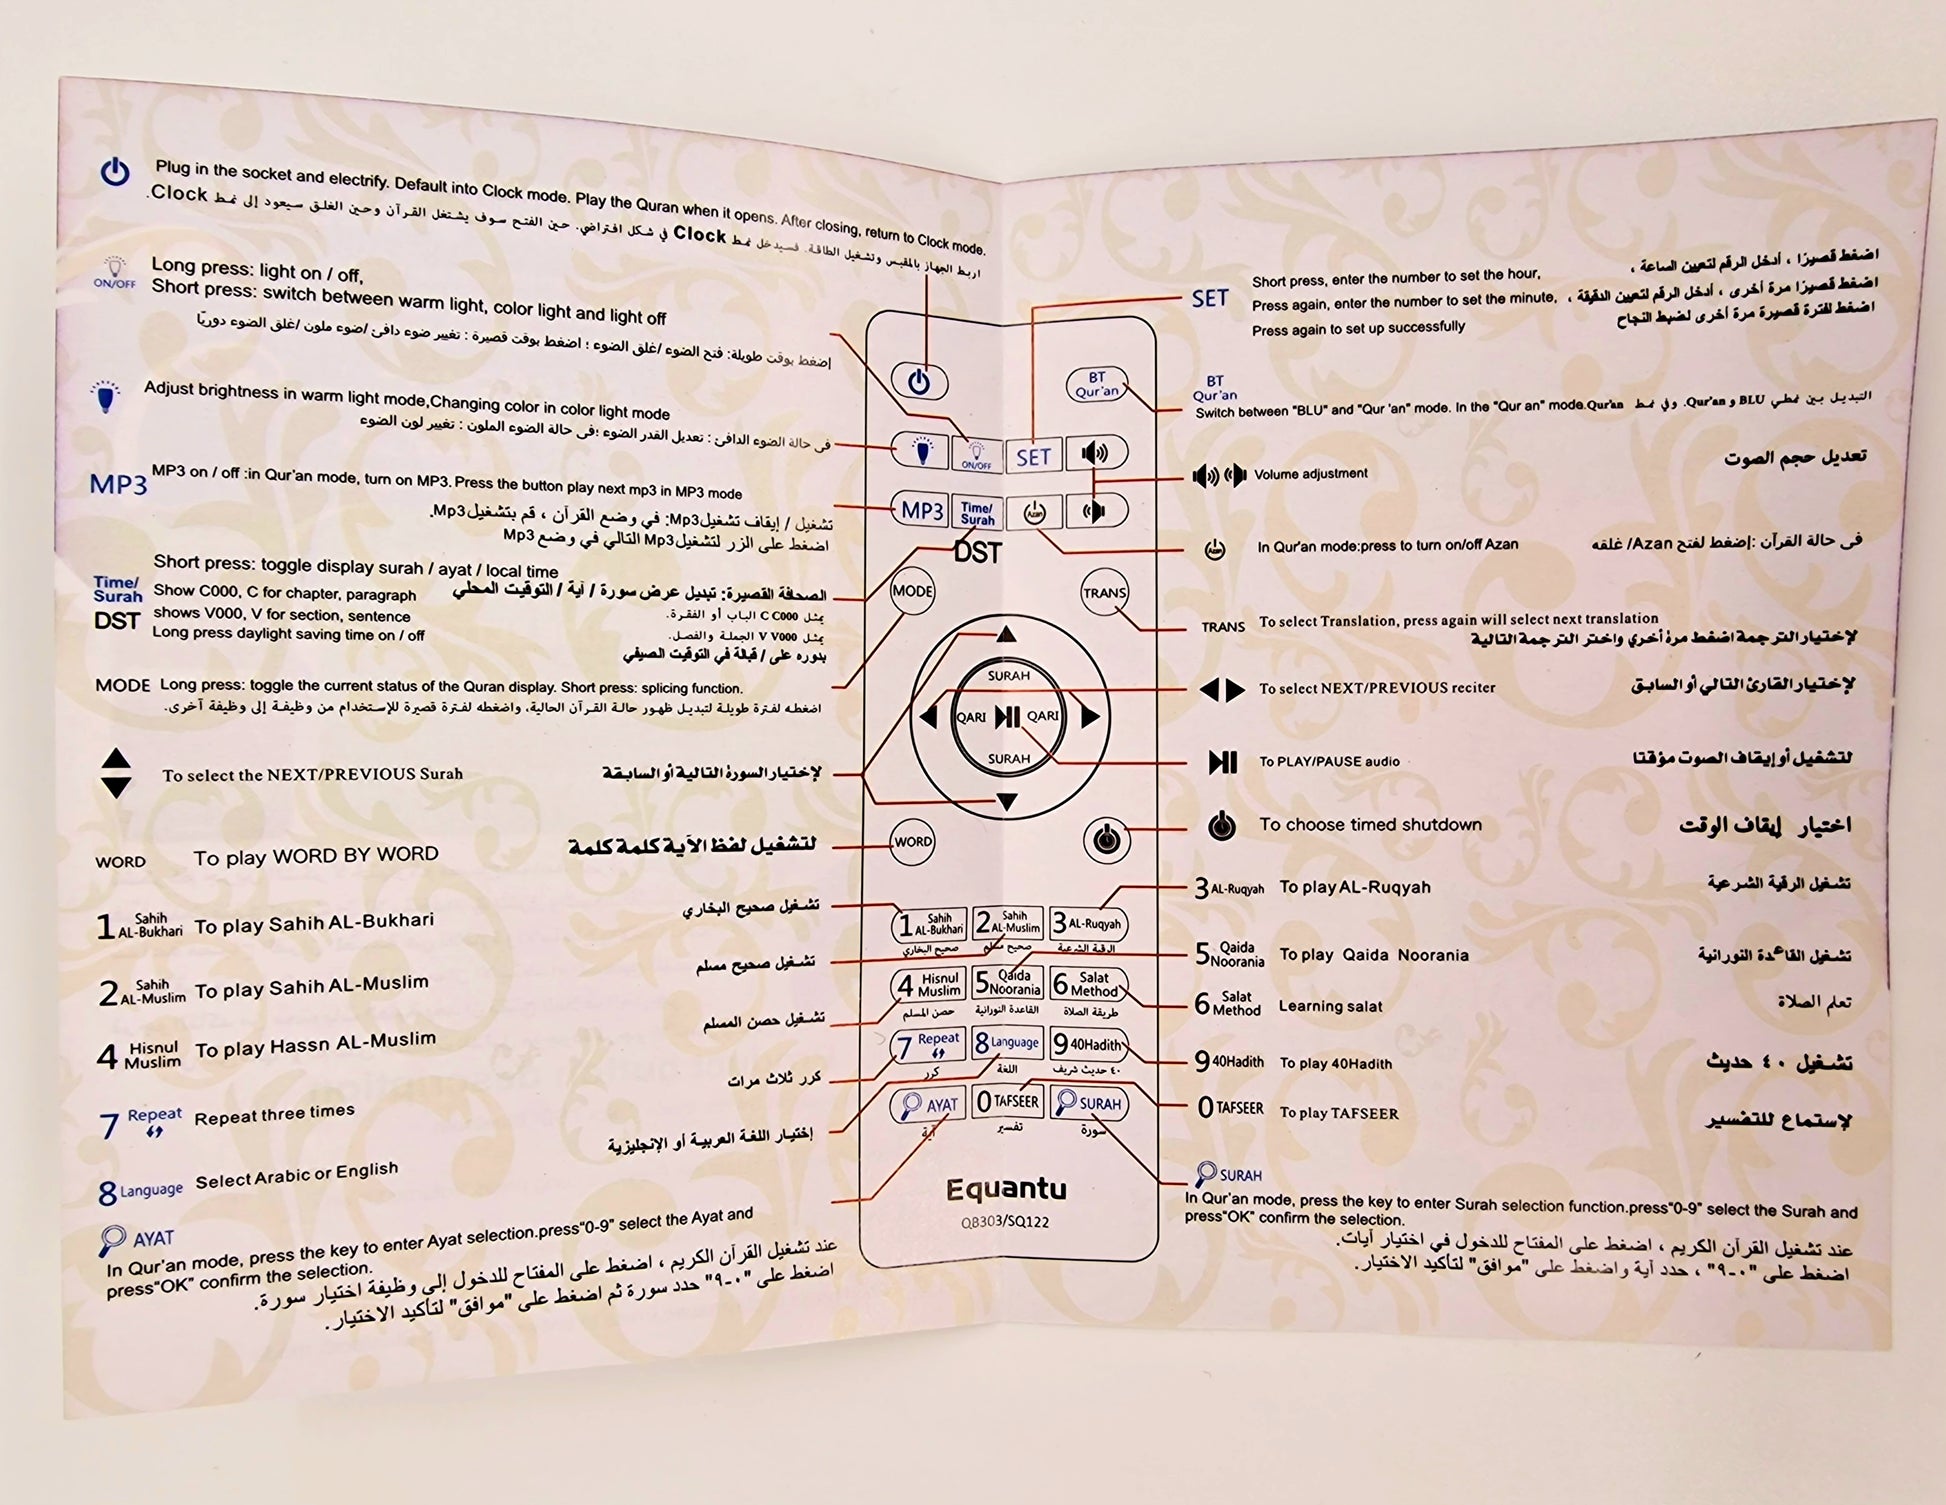 Plug in the socket and electrify. Default into Clock mode. Play the Quran when it opens. After closing, return to Clock mode.
اربط الجهاز بالمقبس وتشغيل الطاقة. فسيدخل نمط Clock في شكل افتراضي. حين الفتح سوف يشتغل القرآن وحين الغلق سيعود إلى نمط Clock.
ON/OFF
Long press: light on / off,
Short press: switch between warm light, color light and light off
إضغط بوقت طويلة: فتح الضوء /غلق الضوء ؛ اضغط بوقت قصيرة : تغيير ضوء دافئ /ضوء ملون /غلق الضوء دوريًا
Adjust brightness in warm light mode,Changing color in color light mode
فى حالة الضوء الدافئ : تعديل القدر الضوء ؛فى حالة الضوء الملون : تغيير لون الضوء
MP3
MP3 on / off :in Qur'an mode, turn on MP3. Press the button play next mp3 in MP3 mode
تشغيل / إيقاف تشغيلMp3: في وضع القرآن ، قم بتشغيلMp3.
اضغط على الزر لتشغيلMp3 التالي في وضع Mp3
Time/
Surah
DST
Short press: toggle display surah / ayat / local time
Show C000, C for chapter, paragraph
shows V000, V for section, sentence
Long press daylight saving time on / off
الصحافة القصيرة: تبديل عرض سورة / آية / التوقيت المحلي
يمثل C C000 الباب أو الفقرة.
يمثل V V000 الجملة والفصل.
بدوره على / قبالة في التوقيت الصيفي
MODE Long press: toggle the current status of the Quran display. Short press: splicing function.
اضغطه لفترة طويلة لتبديل ظهور حالة القرآن الحالية، واضغطه لفترة قصيرة للإستخدام من وظيفة إلى وظيفة أخرى.
To select the NEXT/PREVIOUS Surah
لإختيار السورة التالية أو السابقة
WORD To play WORD BY WORD
لتشغيل لفظ الآية كلمة كلمة
1 Sahih AL-Bukhari To play Sahih AL-Bukhari
تشغيل صحيح البخاري
2 Sahih AL-Muslim To play Sahih AL-Muslim
تشغيل صحيح مسلم
4 Hisnul Muslim To play Hassn AL-Muslim
تشغيل حصن المسلم
7 Repeat Repeat three times
كرر ثلاث مرات
8 Language Select Arabic or English
إختيار اللغة العربية أو الإنجليزية
AYAT
In Qur'an mode, press the key to enter Ayat selection.press"0-9" select the Ayat and
press"OK" confirm the selection.
عند تشغيل القرآن الكريم ، اضغط على المفتاح للدخول إلى وظيفة اختيار سورة.
اضغط على "٠-٩" حدد سورة ثم اضغط على "موافق" لتأكيد الاختيار.
BT
Qur'an
ON/OFF
SET
MP3
Time/
Surah
Azan
DST
MODE
TRANS
SURAH
QARI
QARI
SURAH
WORD
1 Sahih AL-Bukhari
2 Sahih AL-Muslim
3 AL-Ruqyah
صحيح البخاري
صحيح مسلم
الرقية الشرعية
4 Hisnul Muslim
5 Qaida Noorania
6 Salat Method
حصن المسلم
القاعدة النورانية
طريقة الصلاة
7 Repeat
8 Language
9 40Hadith
كرر
اللغة
٤٠ حديث شريف
AYAT
0 TAFSEER
SURAH
آية
تفسير
سورة
Equantu
QB303/SQ122
SET
Short press, enter the number to set the hour,
Press again, enter the number to set the minute,
Press again to set up successfully
اضغط قصيرًا ، أدخل الرقم لتعيين الساعة ،
اضغط قصيرًا مرة أخرى ، أدخل الرقم لتعيين الدقيقة ،
اضغط لفترة قصيرة مرة أخرى لضبط النجاح
BT
Qur'an
Switch between "BLU" and "Qur 'an" mode. In the "Qur an" mode.
التبديل بين نمطي BLU و Qur'an. وفي نمط Qur'an
Volume adjustment
تعديل حجم الصوت
Azan
In Qur'an mode:press to turn on/off Azan
فى حالة القرآن :إضغط لفتح Azan/ غلقه
TRANS To select Translation, press again will select next translation
لإختيار الترجمة اضغط مرة أخري واختر الترجمة التالية
To select NEXT/PREVIOUS reciter
لإختيار القارئ التالي أو السابق
To PLAY/PAUSE audio
لتشغيل أو إيقاف الصوت مؤقتا
To choose timed shutdown
اختيار إيقاف الوقت
3 AL-Ruqyah To play AL-Ruqyah
تشغيل الرقية الشرعية
5 Qaida Noorania To play Qaida Noorania
تشغيل القاعدة النورانية
6 Salat Method Learning salat
تعلم الصلاة
9 40Hadith To play 40Hadith
تشغيل ٤٠ حديث
0 TAFSEER To play TAFSEER
لإستماع للتفسير
SURAH
In Qur'an mode, press the key to enter Surah selection function.press"0-9" select the Surah and
press"OK" confirm the selection.
عند تشغيل القرآن الكريم ، اضغط على المفتاح للدخول في اختيار آيات.
اضغط على "٠-٩" ، حدد آية واضغط على "موافق" لتأكيد الاختيار.